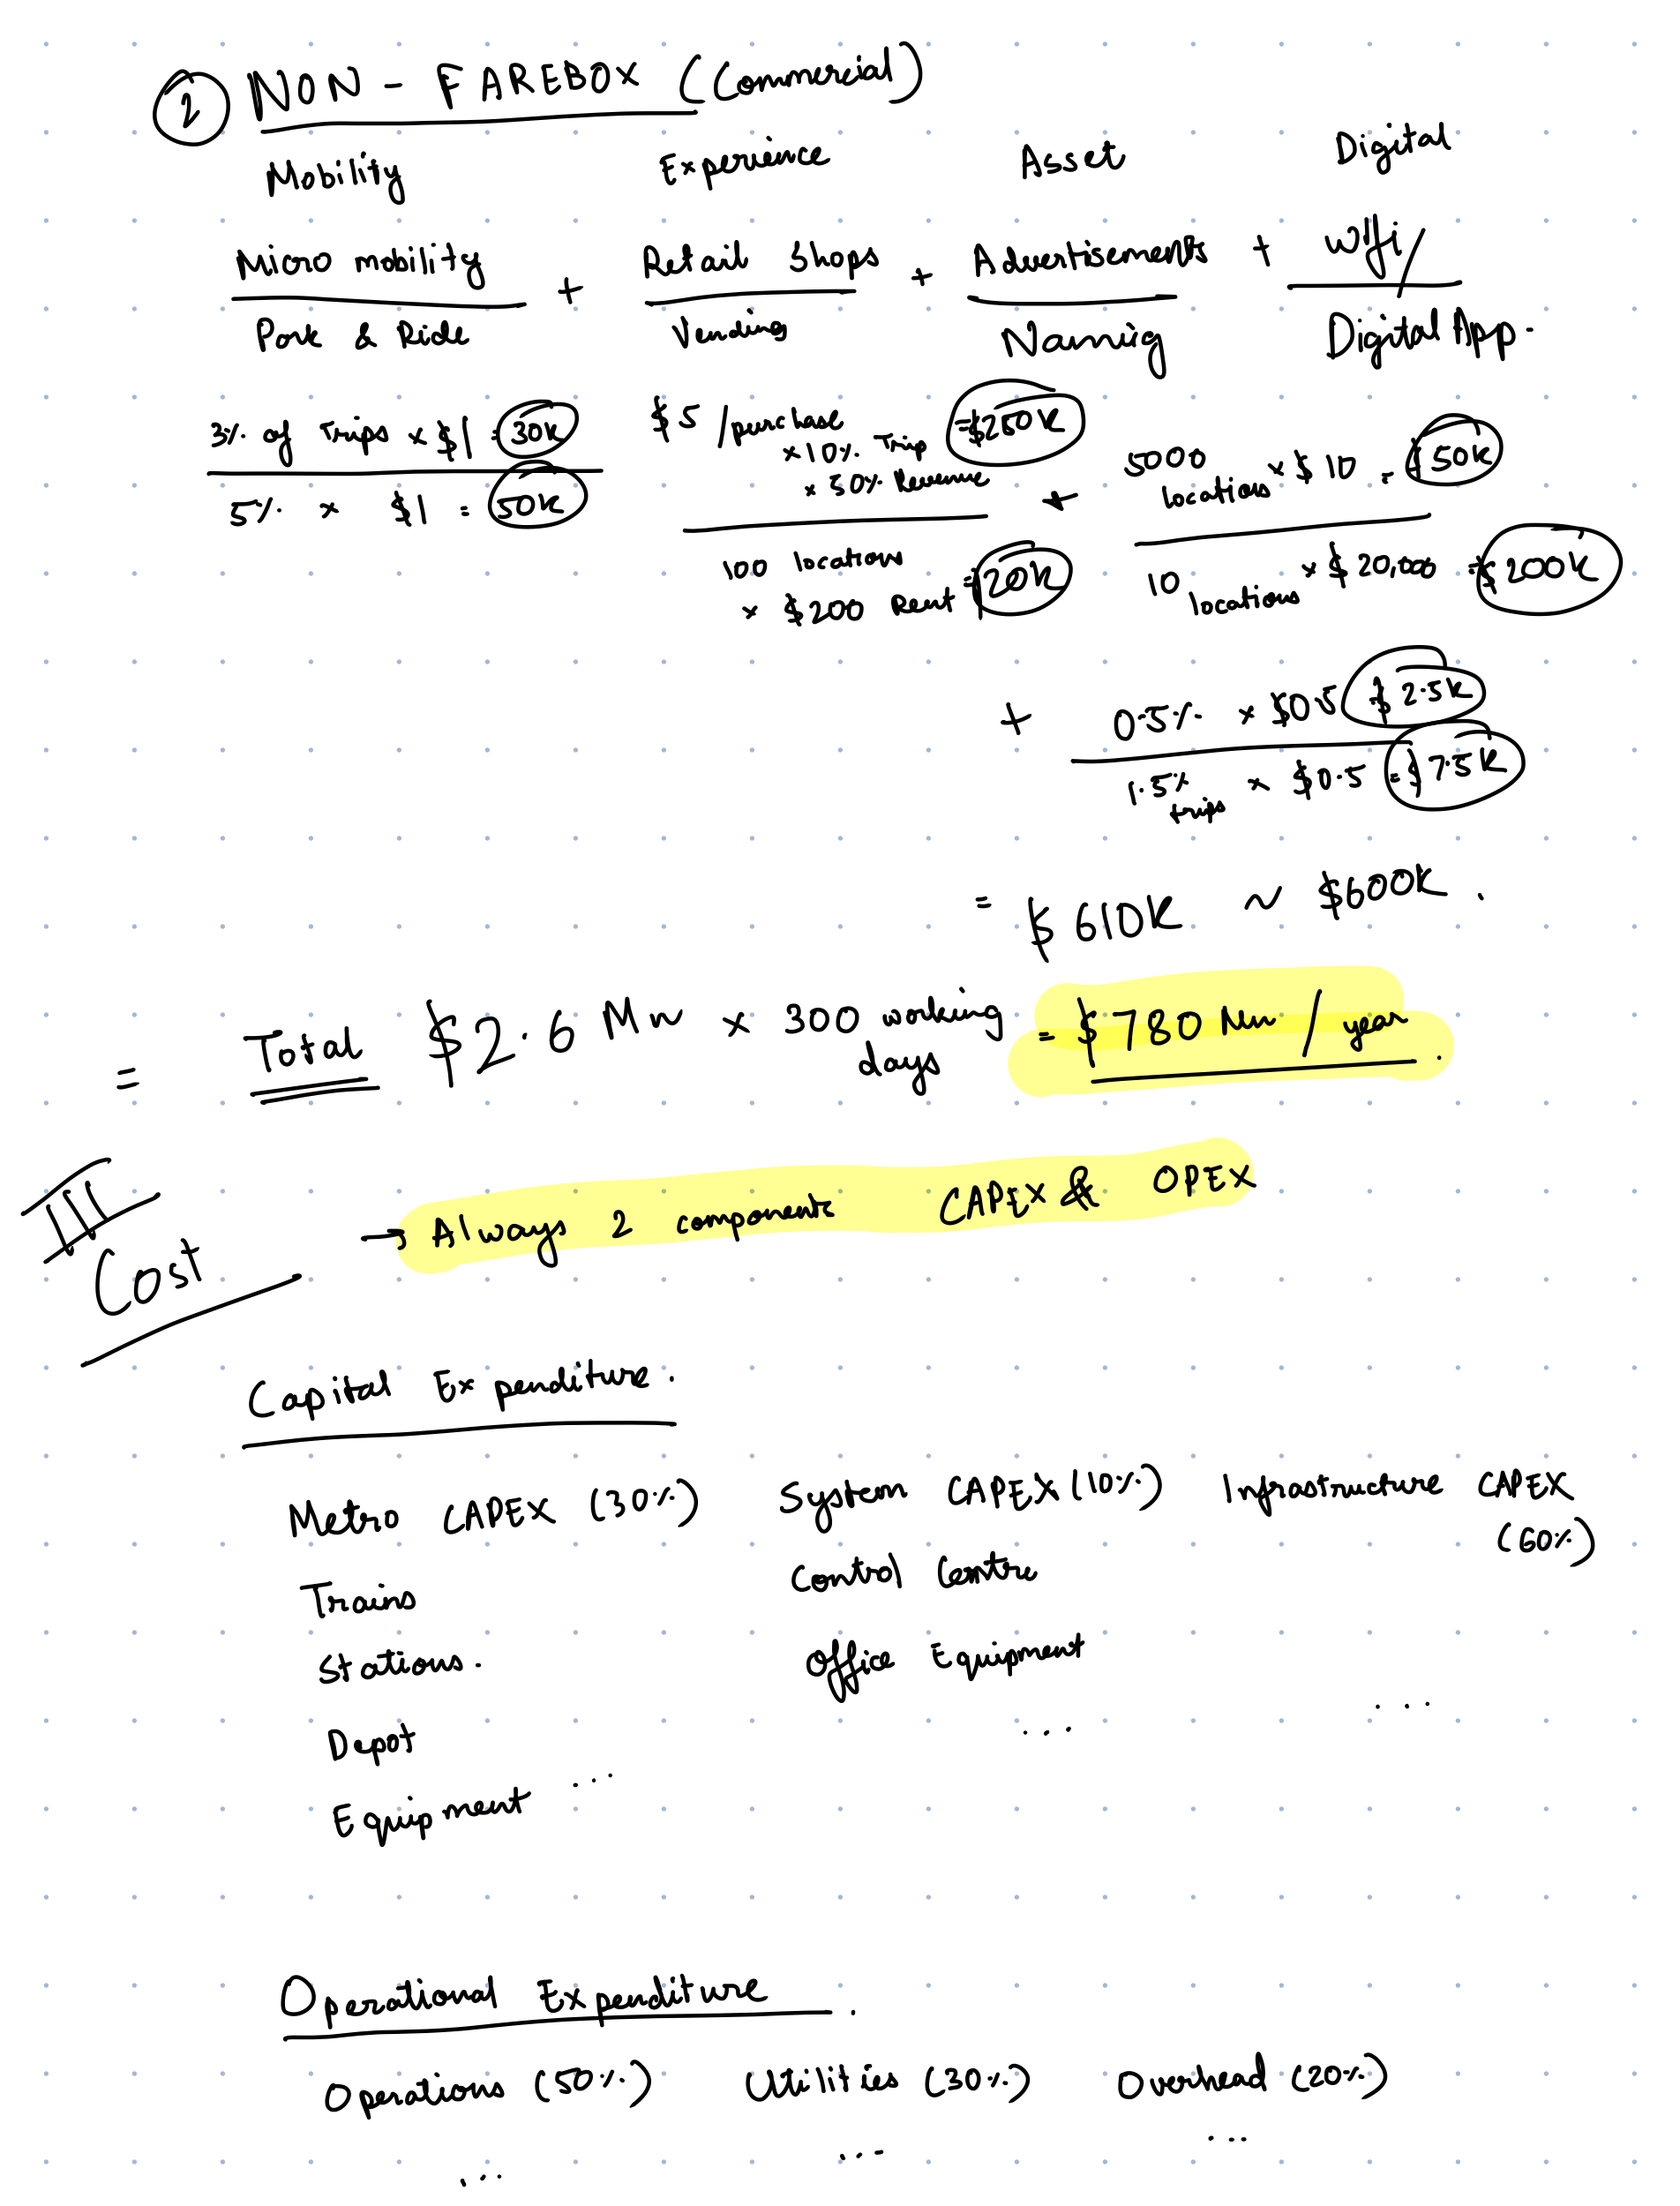 2 NON - FAREBOX (Commercial)
Mobility Experience Asset Digital
Micro mobility + Retail Shops + Advertisements + Wifi/
Park & Ride Vending Naming Digital App.
3% of Trips x $1 = 30K $5 /purchase x 10% Trip x 50% Revenue = $250K + 5000 locations x $10 = $50K
5% x $1 = 50K 100 locations x $200 Rent = $20K 10 locations x $20,000 = $200K
+ 0.5% x $0.5 = $2.5K
1.5% trips x $0.5 = $7.5K
= $610K ~ $600K.
= Total $2.6 Mn x 300 working days = $780 Mn / year.
III Cost → Always 2 components CAPEX & OPEX
Capital Expenditure.
Metro CAPEX (30%) System CAPEX (10%) Infrastructure CAPEX (60%)
Trains Control Centre
Stations. Office Equipment
Depot ... ...
Equipment ...
Operational Expenditure.
Operations (50%) Utilities (30%) Overhead (20%)
... ... ...